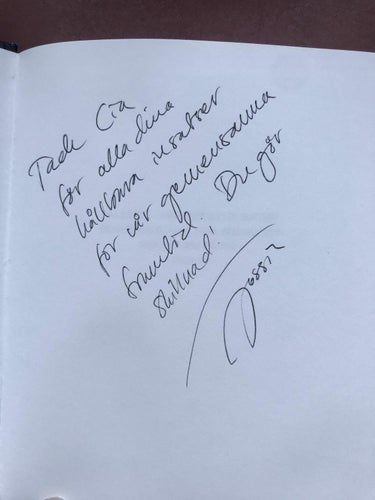 Tack Cia
för alla dina
hållbara insatser
för vår gemensamma
framtid. Du gör
skillnad!